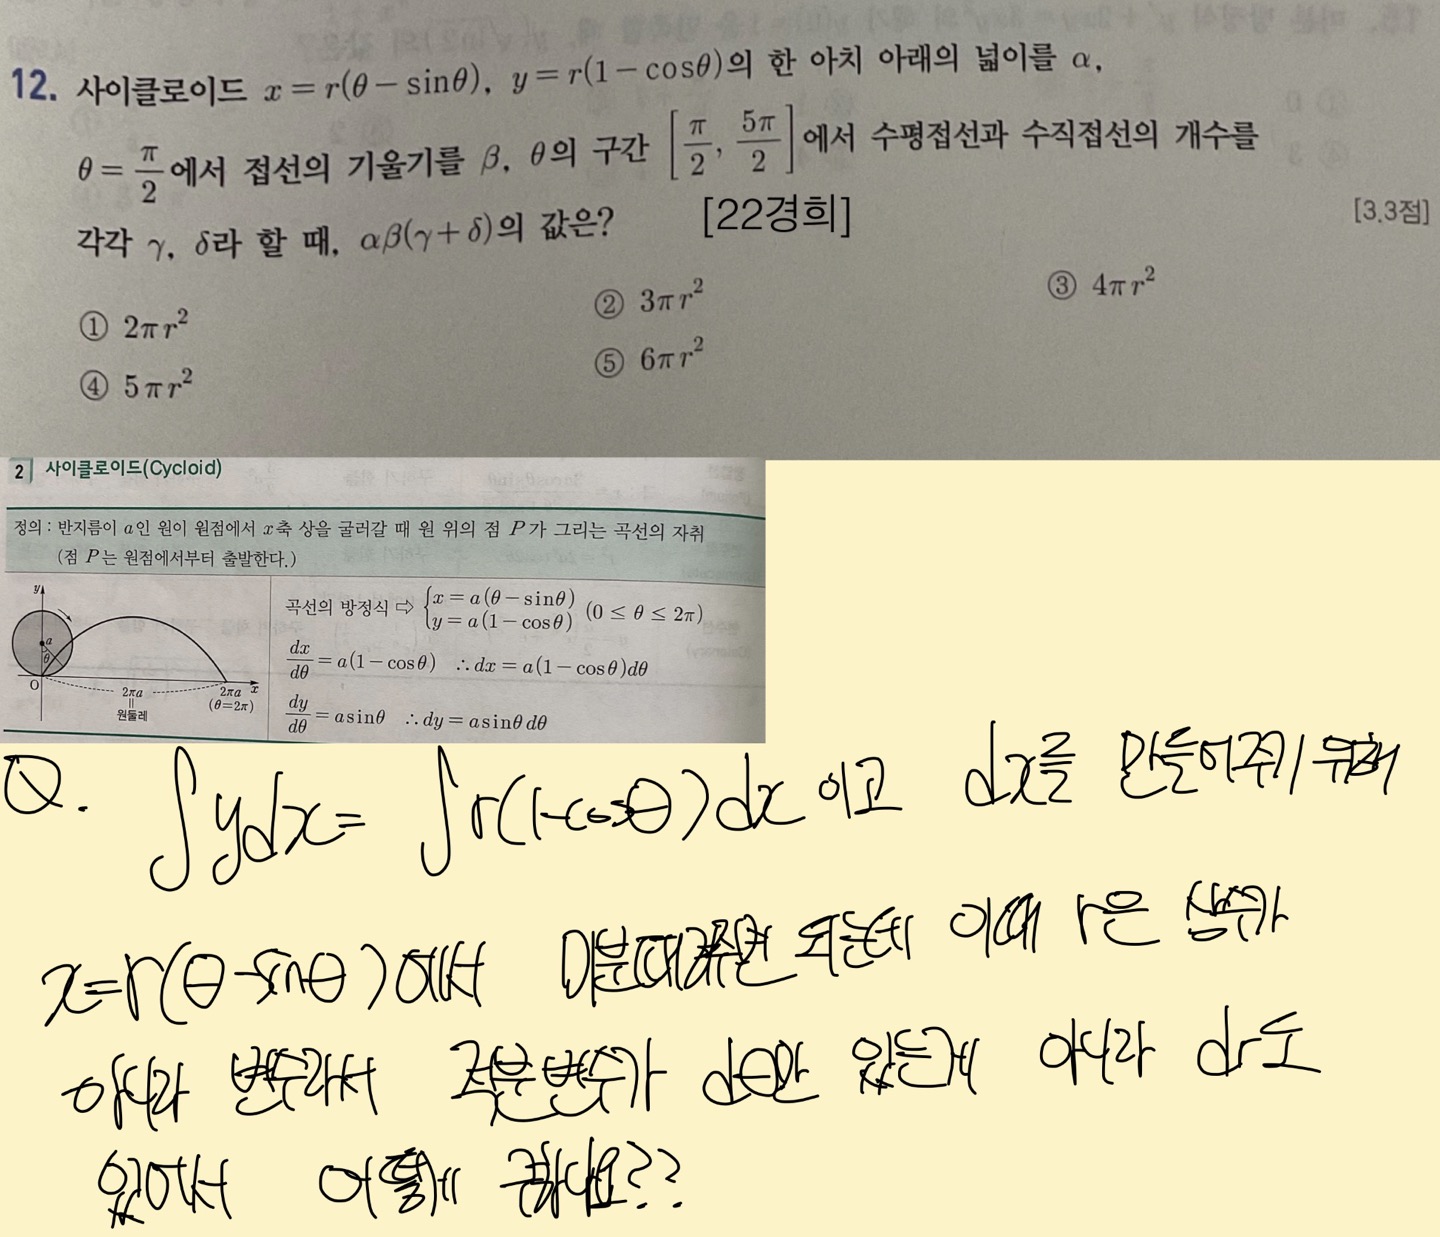 12. 사이클로이드 x = r(θ − sinθ), y = r(1 − cosθ)의 한 아치 아래의 넓이를 α,
θ = π/2 에서 접선의 기울기를 β, θ의 구간 [π/2, 5π/2]에서 수평접선과 수직접선의 개수를
각각 γ, δ라 할 때, αβ(γ+δ)의 값은? [22경희] [3.3점]
① 2πr² ② 3πr² ③ 4πr²
④ 5πr² ⑤ 6πr²
2 사이클로이드(Cycloid)
정의 : 반지름이 a인 원이 원점에서 x축 상을 굴러갈 때 원 위의 점 P가 그리는 곡선의 자취
(점 P는 원점에서부터 출발한다.)
y
a
θ
O
2πa
||
원둘레
2πa x
(θ=2π)
곡선의 방정식 ⇨ { x = a(θ − sinθ)
y = a(1 − cosθ) (0 ≤ θ ≤ 2π)
dx/dθ = a(1 − cosθ) ∴ dx = a(1 − cosθ)dθ
dy/dθ = a sinθ ∴ dy = a sinθ dθ
Q. ∫ydx = ∫r(1-cosθ)dx 이고 dx를 만들어주기 위해
x=r(θ-sinθ)에서 미분때려주면 되는데 이때 r은 상수가
아니라 변수라서 적분변수가 dθ만 있는게 아니라 dr도
있어서 어떻게 구하나요??